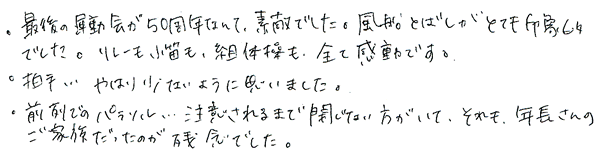 。最後の運動会が50周年なんて、素敵でした。風船とばしがとても印象的
でした。リレーも小笛も、組体操も、全て感動です。
。拍手… やはり少ないように思いました。
。前列でのパラソル… 注意されるまで閉じない方がいて、それも、年長さんの
ご家族だったのが残念でした。